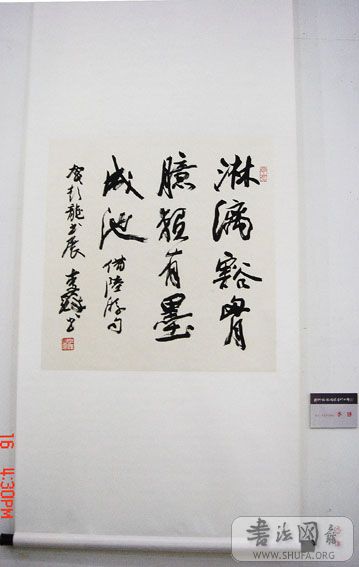 淋漓豁胷
臆頓有墨
成池 借陸游句
賀彭龍书展
16 4:30PM
书法网
WWW.SHUFA.ORG